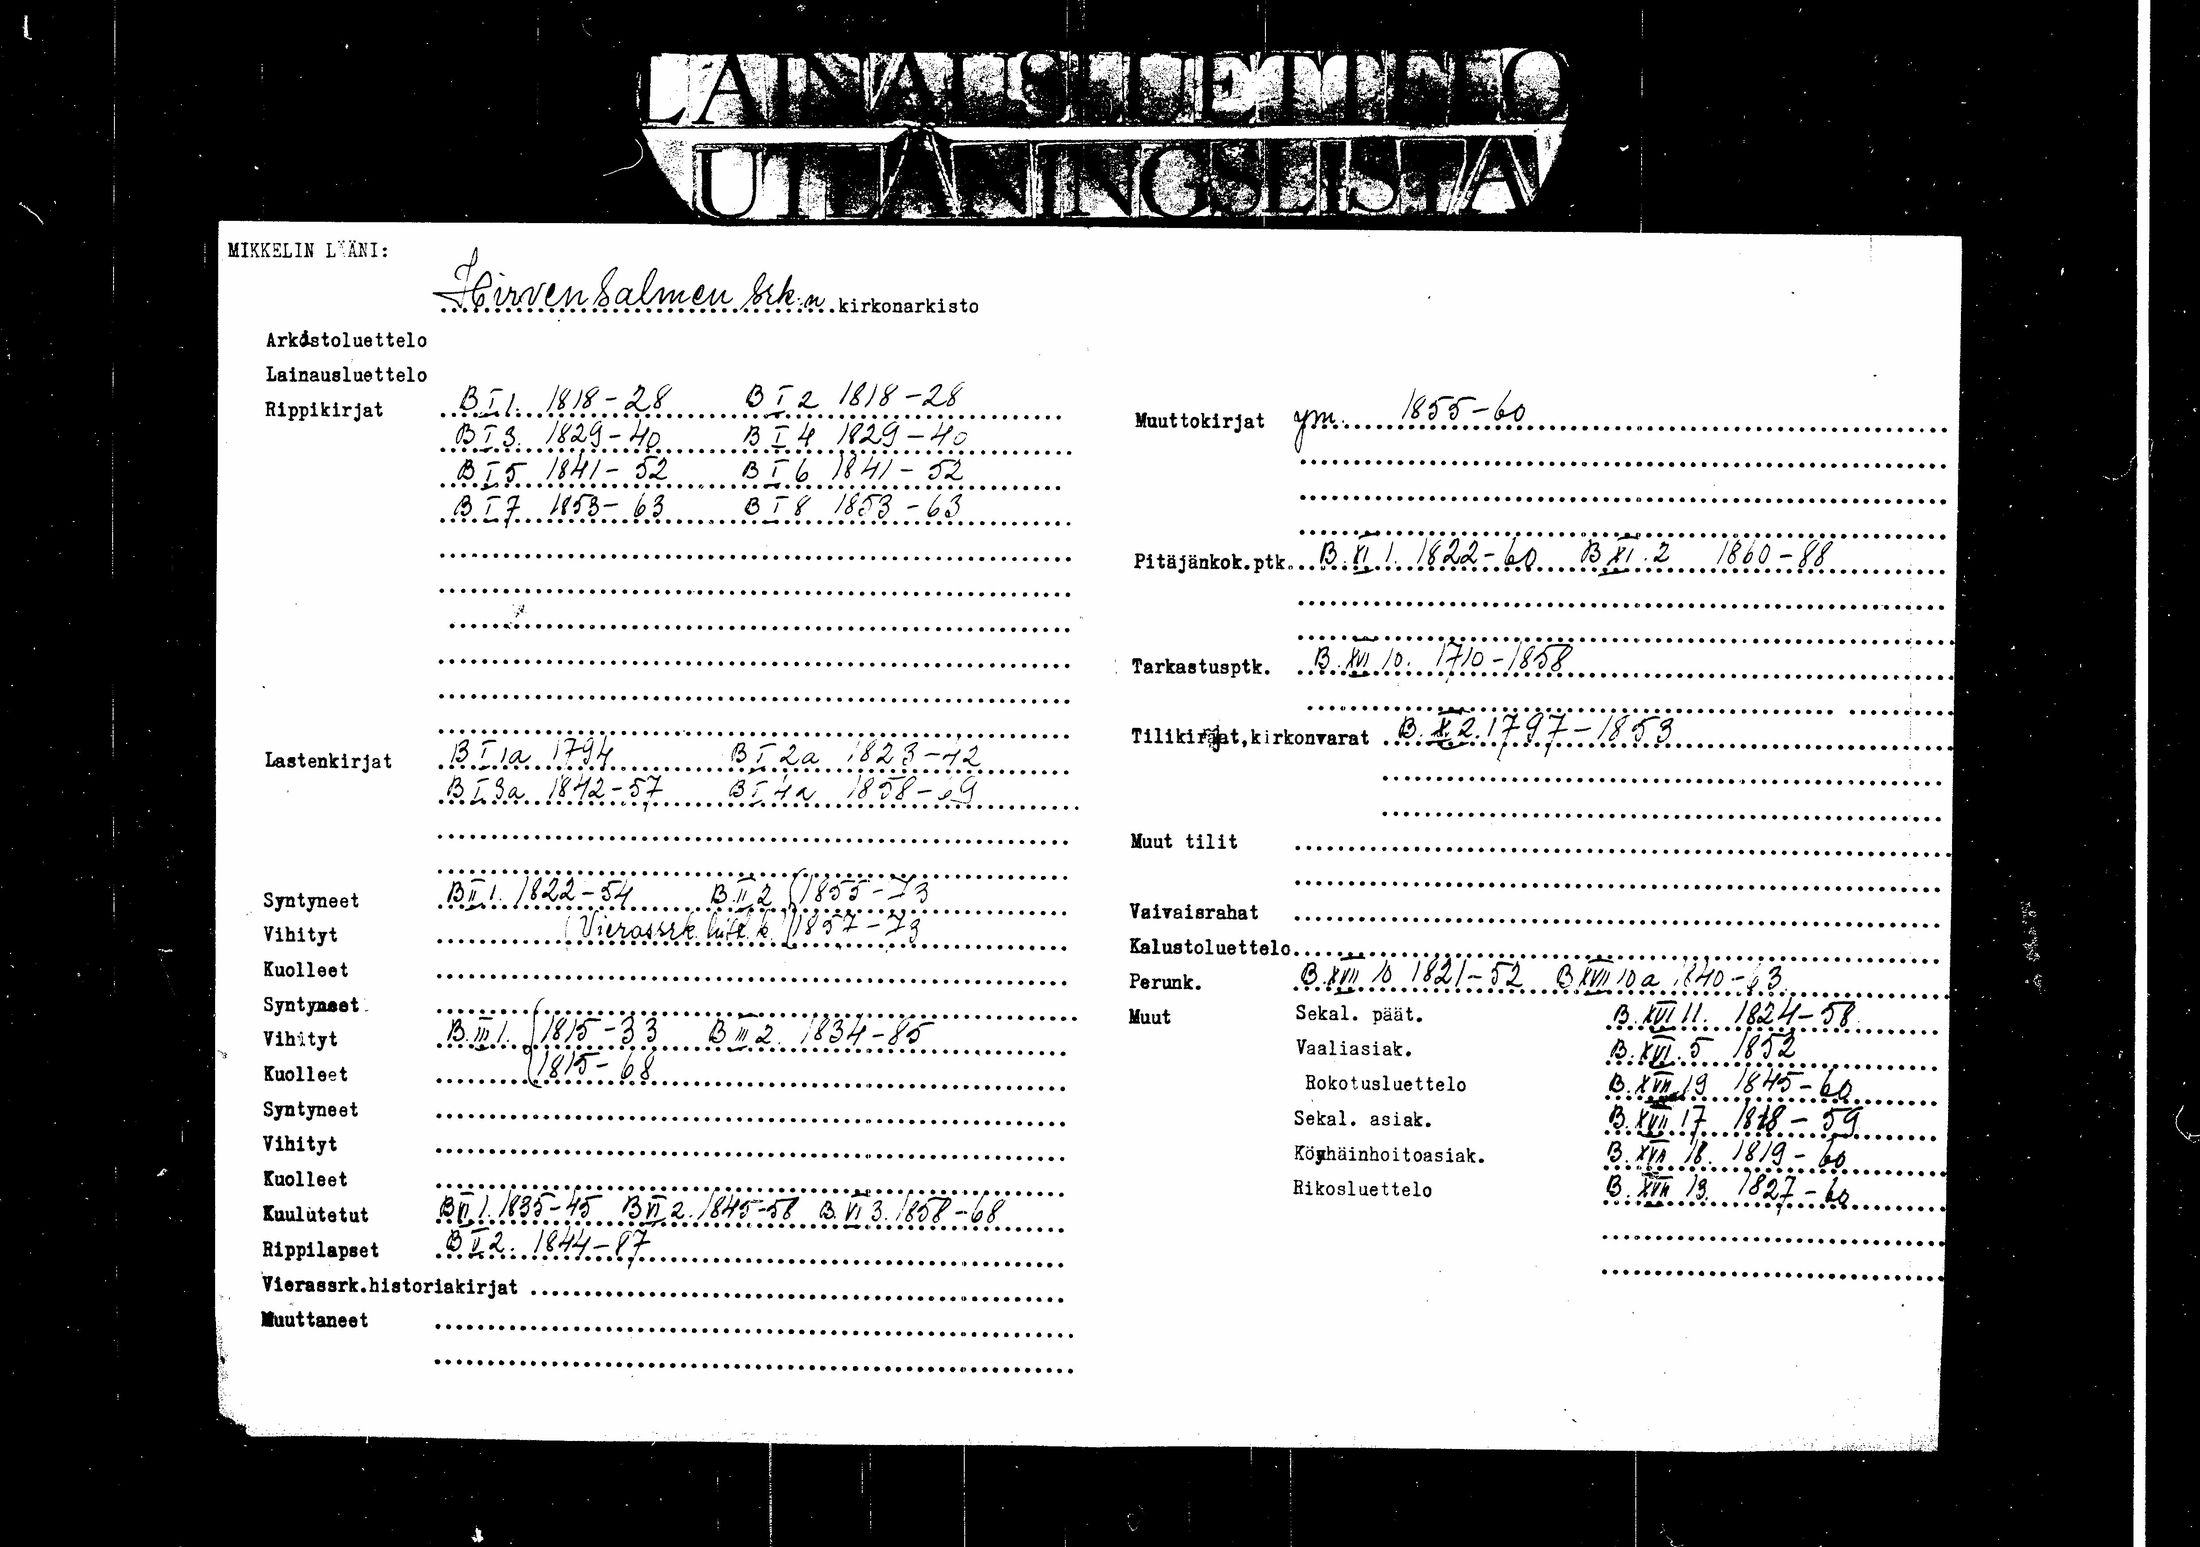 LAINAUSLUETTELO
UTLÅNINGSLISTA
MIKKELIN LÄÄNI:
Hirvensalmen srk:n kirkonarkisto
Arkistoluettelo
Lainausluettelo
Rippikirjat B I 1. 1818-28 B I 2 1818-28
B I 3. 1829-40 B I 4 1829-40
B I 5 1841-52 B I 6 1841-52
B I 7 1853-63 B I 8 1853-63
Lastenkirjat B I 1a 1794 B I 2a 1823-42
B I 3a 1842-57 B I 4a 1858-69
Syntyneet B II 1. 1822-54 B II 2 1855-73
Vihityt (Vierassrk. hist.k.) 1857-73
Kuolleet
Syntyneet
Vihityt B. III 1. 1815-33 B III 2. 1834-85
Kuolleet 1815-68
Syntyneet
Vihityt
Kuolleet
Kuulutetut B VI 1. 1835-45 B VI 2. 1845-58 B. VI 3. 1858-68
Rippilapset B V 2. 1844-87
Vierassrk.historiakirjat
Muuttaneet
Muuttokirjat ym. 1855-60
Pitäjänkok.ptk. B. XI 1. 1822-60 B XI. 2 1860-88
Tarkastusptk. B. XVI 10. 1710-1858
Tilikirjat,kirkonvarat B. X. 2. 1797-1853
Muut tilit
Vaivaisrahat
Kalustoluettelo
Perunk. B. XVII 10 1821-52 B XVII 10a 1840-63
Muut Sekal. päät. B. XVI 11. 1824-58
Vaaliasiak. B. XVI. 5 1852
Rokotusluettelo B. XVII 19 1845-60
Sekal. asiak. B. XVII 17 1818-59
Köyhäinhoitoasiak. B. XVII 18. 1819-60
Rikosluettelo B. XVII 13. 1827-60